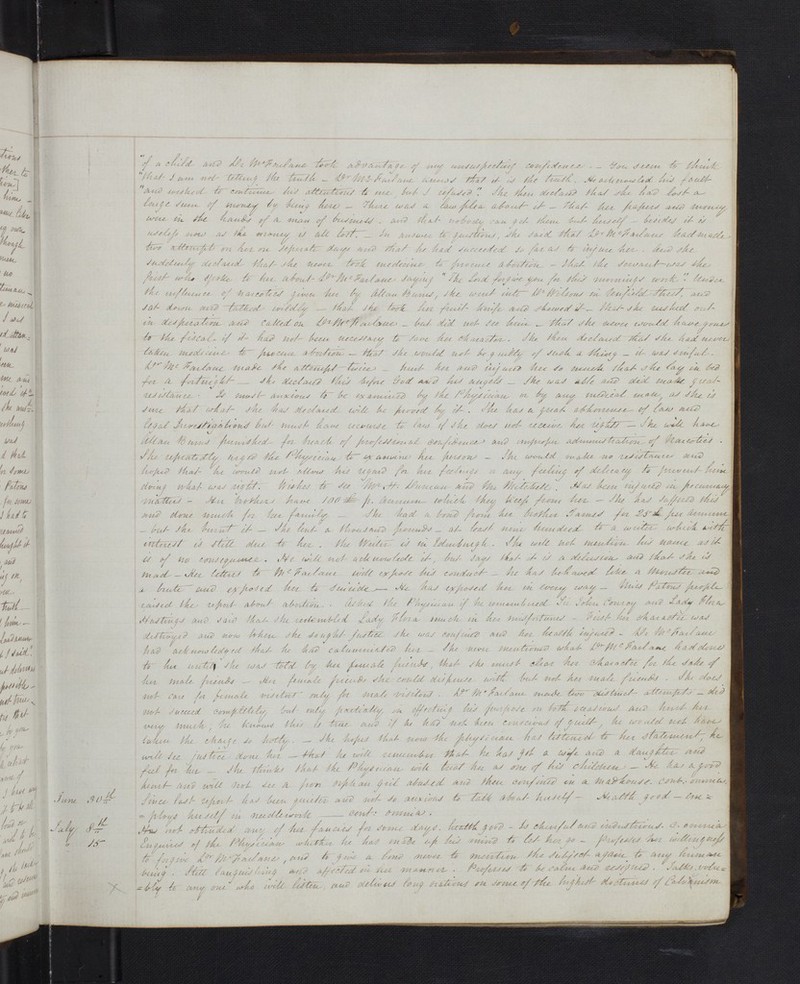 "of a child and Dr McFarlane took advantage of my unsuspecting confidence. — You seem to think
"that I am not telling the truth — Dr McFarlane knows that it is the truth. He acknowledged his fault
"and wished to continue his attentions to me but I refused". She then declared that she had lost a
large sum of money by being here — There was a law plea about it — That her papers and money
were in the hands of a man of business, and that nobody can get them but herself — besides it is
useless now as the money is all lost. — In answer to questions, she said that Dr McFarlane had made
two attempts on her on separate days and that he had succeeded so far as to injure her. And she
suddenly declared that she never took medicine to procure abortion — That the servant was the
first who spoke to her about Dr McFarlane saying "The Lord forgive you for this mornings work." Under
the influence of narcotics given her by Allan Burns, she went into Dr Wilsons in Street, and
sat down and talked wildly — that she took her fruit knife and shewed it — That she rushed out
in desperation and called on Dr McFarlane — but did not see him — that she never would have gone
to the fiscal if it had not been necessary to save her character. She then declared that she had never
taken medicine to procure abortion — that she would not be guilty of such a thing — it was sinful.
Dr McFarlane made the attempt twice — hurt her and injured her so much that she lay in bed
for a fortnight — she declared this before God and his angels — She was able and did make great
resistance. Is most anxious to be examined by the Physician or by any medical man, as she is
sure that what she has declared will be proved by it. She has a great abhorrence of law and
legal Investigations but must have recourse to law if she does not receive her rights — She will have
Allan Burns punished for breach of professional confidence and improper administration of Narcotics.
She repeatedly urged the Physician to examine her person — She would make no resistance and
hoped that he would not allow his regard for her feelings or any feeling of delicacy to prevent him
doing what was right. Wishes to see Mr H. Duncan and Mr Mitchell. Has been injured in pecuniary
matters — Her brothers have p. annum which they keep from her — She has suffered this
and done much for her family — She had a bond from her brother James for 25£ per annum
— but she burnt it — She lent a thousand pounds — at least nine hundred to a writer which with
interest is still due to her. The Writer is in Edinburgh. She will not mention his name as it
is of no consequence. He will not acknowledge it, but says that it is a delusion and that she is
mad — Her letters to McFarlane will expose his conduct — he has behaved like a Monster and
a brute and exposed her to suicide — He has exposed her in every way — Miss Patons people
raised the report about abortion. Asked the Physician if he remembered Sir John Conroy and Lady Flora
Hastings and said that she resembled Lady Flora much in her misfortunes — First her character was
destroyed and now when she sought justice she was confined and her health injured — Dr McFarlane
had acknowledged that he had calumniated her — She never mentioned what Dr McFarlane had done
to her until she was told by her female friends, that she must clear her character for the sake of
her male friends — Her female friends she could dispense with but not her male friends. She does
not care for female visitors only for male visitors. Dr McFarlane made two distinct attempts — did
not succeed completely but only partially in effecting his purpose on both occasions and hurt her
very much, he knows this is true and if he had not been conscious of guilt, he would not have
taken the charge so hotly — She hopes that now the physician has listened to her statement, he
will see justice done her — that he will remember that he has got a wife and a daughter and
feel for her — She thinks that the Physician will treat her as one of his children — He has a good
heart and will not see a poor orphan girl abused and then confined in a madhouse. contr. omnia
June 30th Since last report has been quieter and not so anxious to talk about herself — Health good — em =
= ploys herself in needlework — cont. omnia.
July 8th Has not obtruded any of her fancies for some days. health good — Is cheerful and industrious. c. omnia
" 15 Enquires of the Physician whether he has made up his mind to let her go — professes her willingness
to forgive Dr McFarlane, and to give a bond never to mention the subject again to any human
being. Still languishing and affected in her manner. Professes to be calm and resigned. Talks volu=
X =bly to any one who will listen, and delivers long orations on some of the highest doctrines of Calvinism